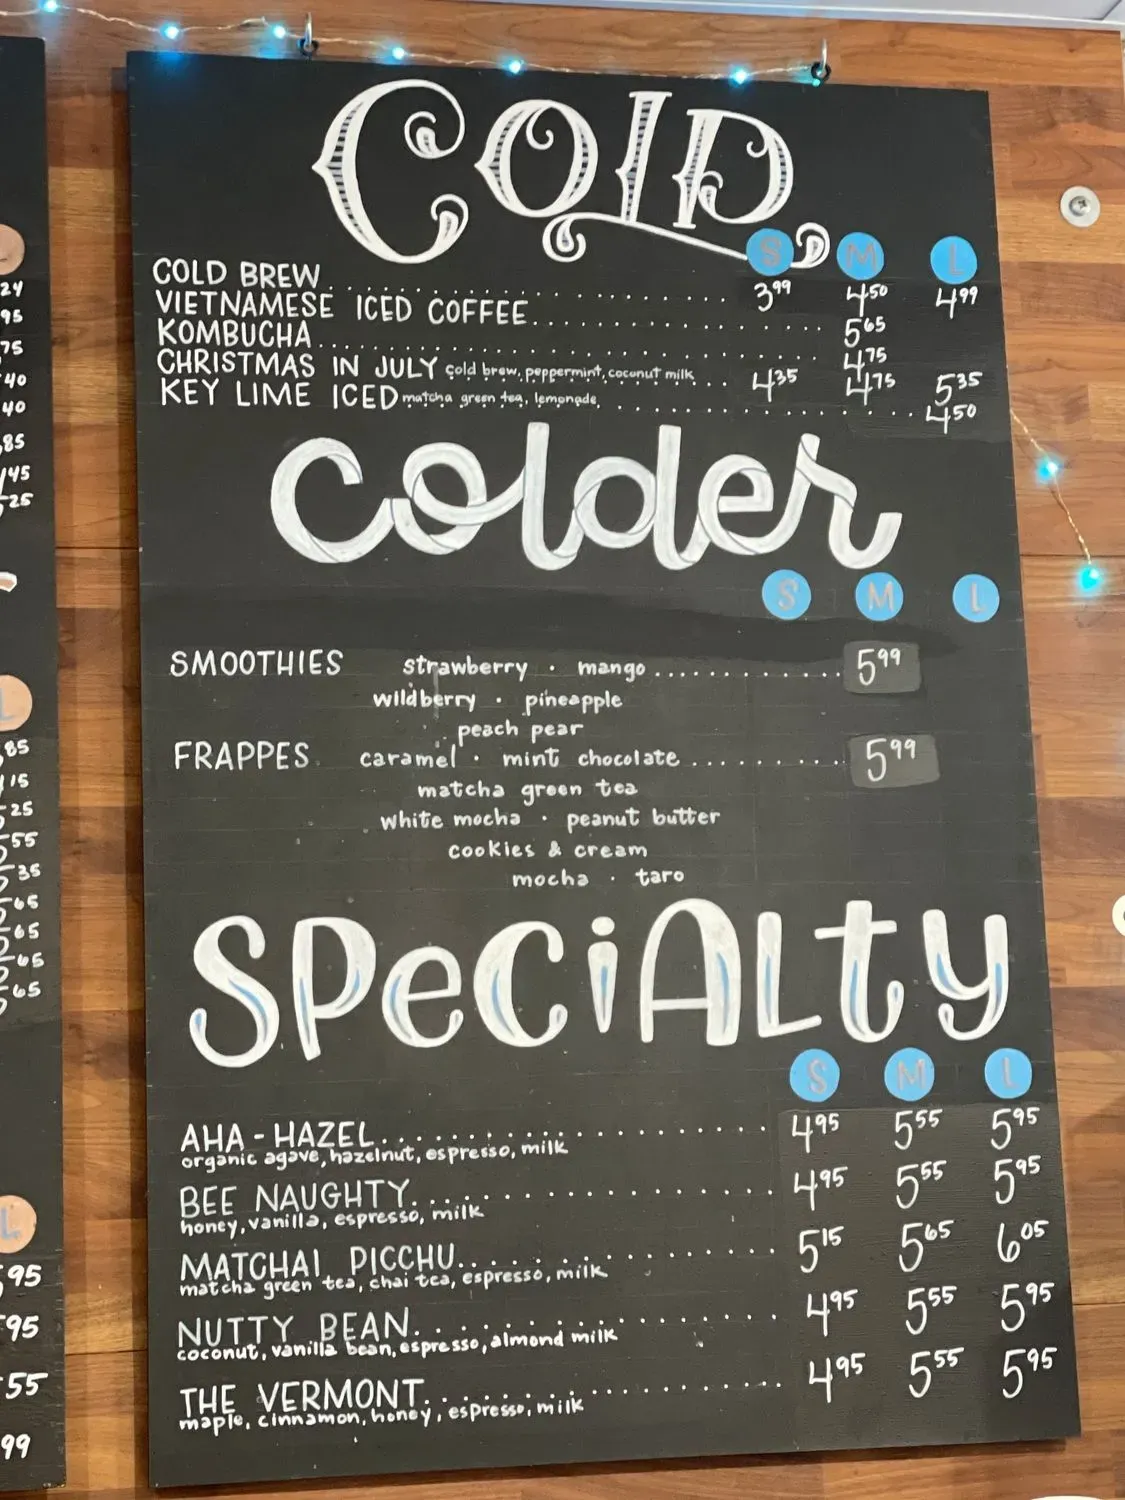 COLD
S M L
COLD BREW 3.99 4.50 4.99
VIETNAMESE ICED COFFEE 5.65
KOMBUCHA 4.75
CHRISTMAS IN JULY cold brew, peppermint, coconut milk 4.35 4.75 5.35
KEY LIME ICED matcha green tea, lemonade 4.50
colder
S M L
SMOOTHIES strawberry · mango 5.99
wildberry · pineapple
peach pear
FRAPPES caramel · mint chocolate 5.99
matcha green tea
white mocha · peanut butter
cookies & cream
mocha · taro
SPeCiALty
S M L
AHA-HAZEL 4.95 5.55 5.95
organic agave, hazelnut, espresso, milk
BEE NAUGHTY 4.95 5.55 5.95
honey, vanilla, espresso, milk
MATCHAI PICCHU 5.15 5.65 6.05
matcha green tea, chai tea, espresso, milk
NUTTY BEAN 4.95 5.55 5.95
coconut, vanilla bean, espresso, almond milk
THE VERMONT 4.95 5.55 5.95
maple, cinnamon, honey, espresso, milk